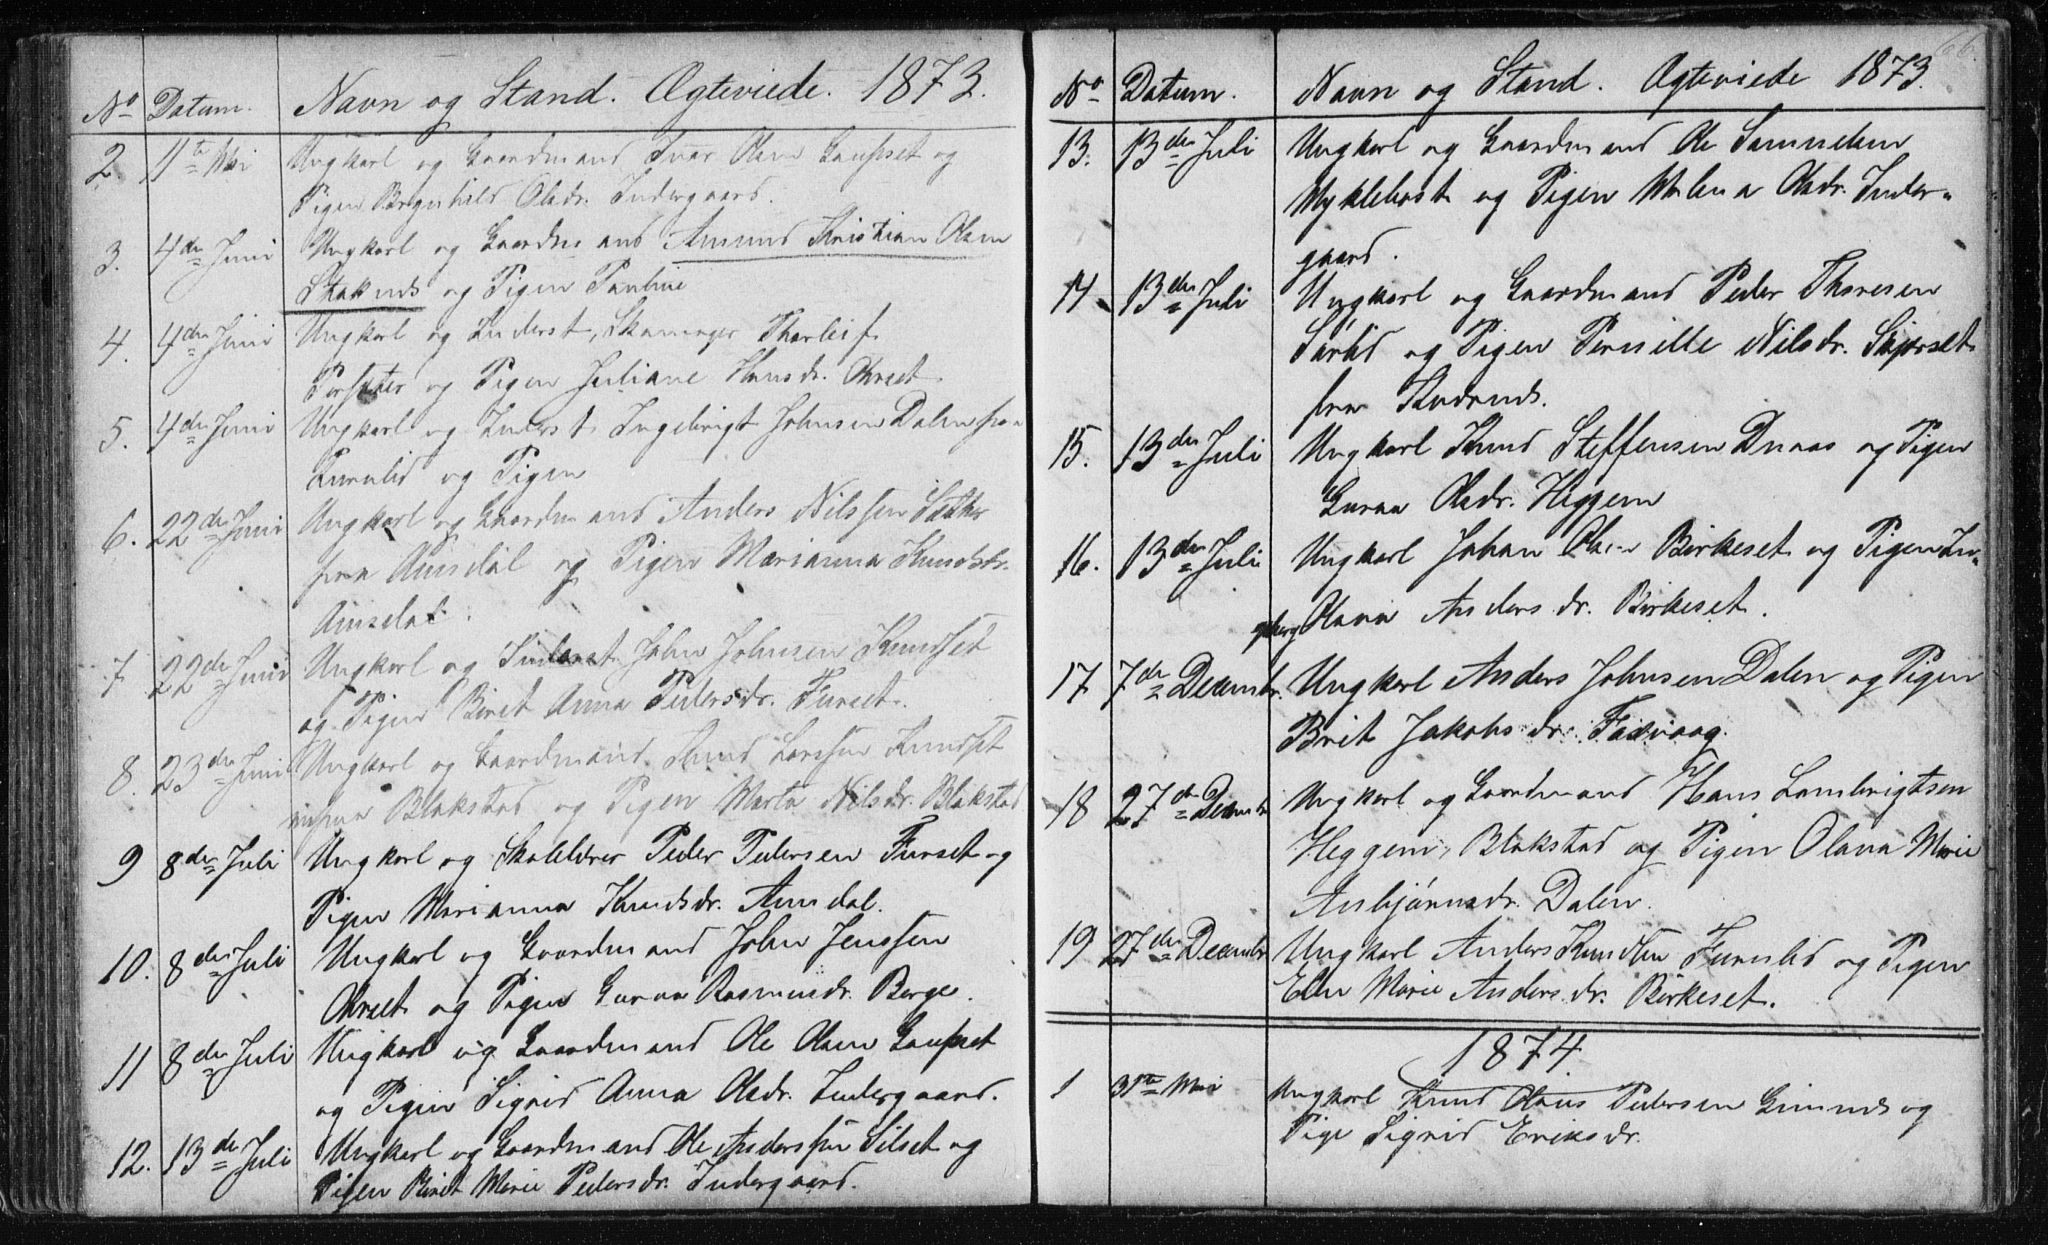 No Datum. Navn og Stand. Ægteviede. 1873.
2. 11te Mai Ungkarl og Gaardmand Ivar Olsen Gaupset og
Pigen Brynhild Olsdr. Indergaard.
3. 4de Juni Ungkarl og Gaardmand Amund Kristian Olsen
Staknes og Pigen Pauline
4. 4de Juni Ungkarl og Inderst, Skomager Thorleif
og Pigen Juliane Hansdr. Orset
5. 4de Juni Ungkarl og Inderst Ingebrigt Johnsen Dalen fra
Furulid og Pigen
6. 22de Juni Ungkarl og Gaardmand Anders Nilssen Sæther
fra Aunsdal og Pigen Marianna Knudsdr.
Aunsdal.
7 22de Juni Ungkarl og Inderst John Johnsen Knudset
og Pigen Beret Anna Pedersdr. Furset.
8. 23de Juni Ungkarl og Gaardmand Knud Larssen Knudset
Blakstad og Pigen Marta Nilsdr. Blakstad
9 8de Juli Ungkarl og Skolelærer Peder Pedersen Furset og
Pigen Marianna Knudsdr. Aunsdal.
10. 8de Juli Ungkarl og Gaardmand John Jenssen
Orset og Pigen Guraa Rasmusdr. Berge.
11 8de Juli Ungkarl og Gaardmand Ole Olsen Gaupset
og Pigen Sigrid Anna Olsdr. Indergaard.
12. 13de Juli Ungkarl og Gaardmand Ole Anderssen Silset og
Pigen Beret Marie Pedersdr. Indergaard.
66.
No Datum. Navn og Stand. Ægteviede 1873.
13. 13de Juli Ungkarl og Gaardmand Ole Samuelsen
Myklebost og Pigen Malena Olsdr. Inder-
gaard.
14 13de Juli Ungkarl og Gaardmand Peder Thoresen
Sørlid og Pigen Pernille Nilsdr.
fra
15. 13de Juli Ungkarl Knud Steffensen Dnaas og Pigen
Guraa Olsdr. Heggem
16. 13de Juli Ungkarl Johan Olsen Birkeset og Pigen In-
geborg Olava Andersdr. Birkeset.
17 7de Decembr. Ungkarl Anders Johnsen Dalen og Pigen
Brit Jakobsdr.
18 27de Decembr Ungkarl og Gaardmand Hans Lambrigtsen
Heggem, Blakstad og Pigen Olava Marie
Asbjørnsdr. Dalen.
19 27de Decembr Ungkarl Anders Knudsen Furulid og Pigen
Elen Marie Andersdr. Birkeset.
1874.
1 31te Mai Ungkarl Knud Olaus Pedersen Gimnes og
Pige Sigrid Eriksdr.